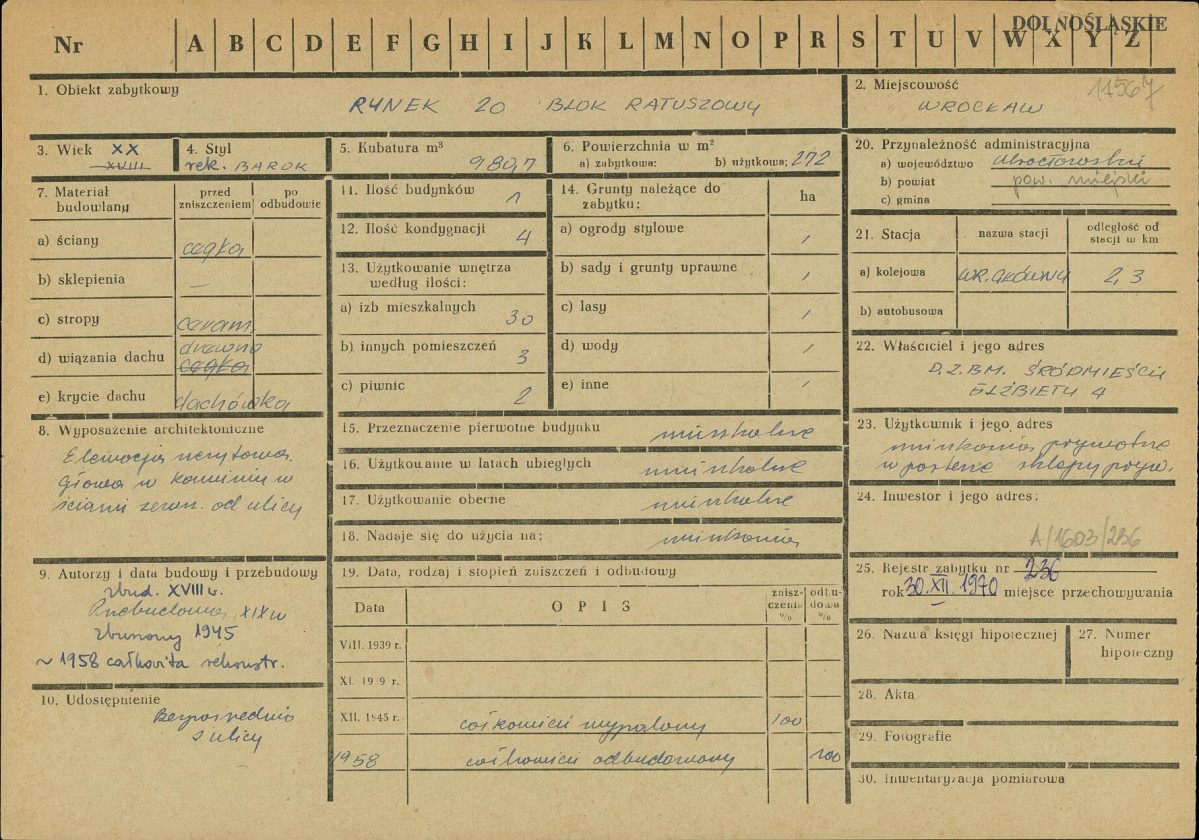 Nr A B C D E F G H I J K L M N O P R S T U V W X Y Z
DOLNOŚLĄSKIE
1. Obiekt zabytkowy
RYNEK 20 BLOK RATUSZOWY
2. Miejscowość
11567
WROCŁAW
3. Wiek XX
XVIII
4. Styl
rek. BAROK
5. Kubatura m³
980,7
6. Powierzchnia w m²
a) zabytkowa: b) użytkowa: 272
20. Przynależność administracyjna
a) województwo Wrocławskie
b) powiat pow. miejski
c) gmina
7. Materiał budowlany
przed zniszczeniem
po odbudowie
a) ściany cegła
b) sklepienia —
c) stropy ceram.
d) wiązania dachu drewno
cegła
e) krycie dachu dachówka
11. Ilość budynków 1
12. Ilość kondygnacji 4
13. Użytkowanie wnętrza według ilości:
a) izb mieszkalnych 30
b) innych pomieszczeń 3
c) piwnic 2
14. Grunty należące do zabytku:
ha
a) ogrody stylowe
b) sady i grunty uprawne
c) lasy
d) wody
e) inne
21. Stacja
nazwa stacji
odległość od stacji w km
a) kolejowa WR. GŁÓWNY 2,3
b) autobusowa
22. Właściciel i jego adres
D.Z.B.M. ŚRÓDMIEŚCIE
ELŻBIETY 4
8. Wyposażenie architektoniczne
Elewacja
Głowa w kamieniu w
ścianie zewn. od ulicy
15. Przeznaczenie pierwotne budynku mieszkalne
16. Użytkowanie w latach ubiegłych mieszkalne
17. Użytkowanie obecne mieszkalne
18. Nadaje się do użycia na: mieszkania
23. Użytkownik i jego adres
mieszkania prywatne
w parterze sklepy pryw.
24. Inwestor i jego adres:
A/1603/236
25. Rejestr zabytku nr 236
rok 30.XII.1970 miejsce przechowywania
9. Autorzy i data budowy i przebudowy
zbud. XVIII w.
Przebudowa XIX w
zburzony 1945
~ 1958 całkowita rekonstr.
10. Udostępnienie
Bezpośrednio
z ulicy
19. Data, rodzaj i stopień zniszczeń i odbudowy
Data
OPIS
zniszczenia %
odbudowa %
VIII. 1939 r.
XI. 19 9 r.
XII. 1945 r. całkowicie wypalony 100
1958 całkowicie odbudowany 100
26. Nazwa księgi hipotecznej
27. Numer hipoteczny
28. Akta
29. Fotografie
30. Inwentaryzacja pomiarowa